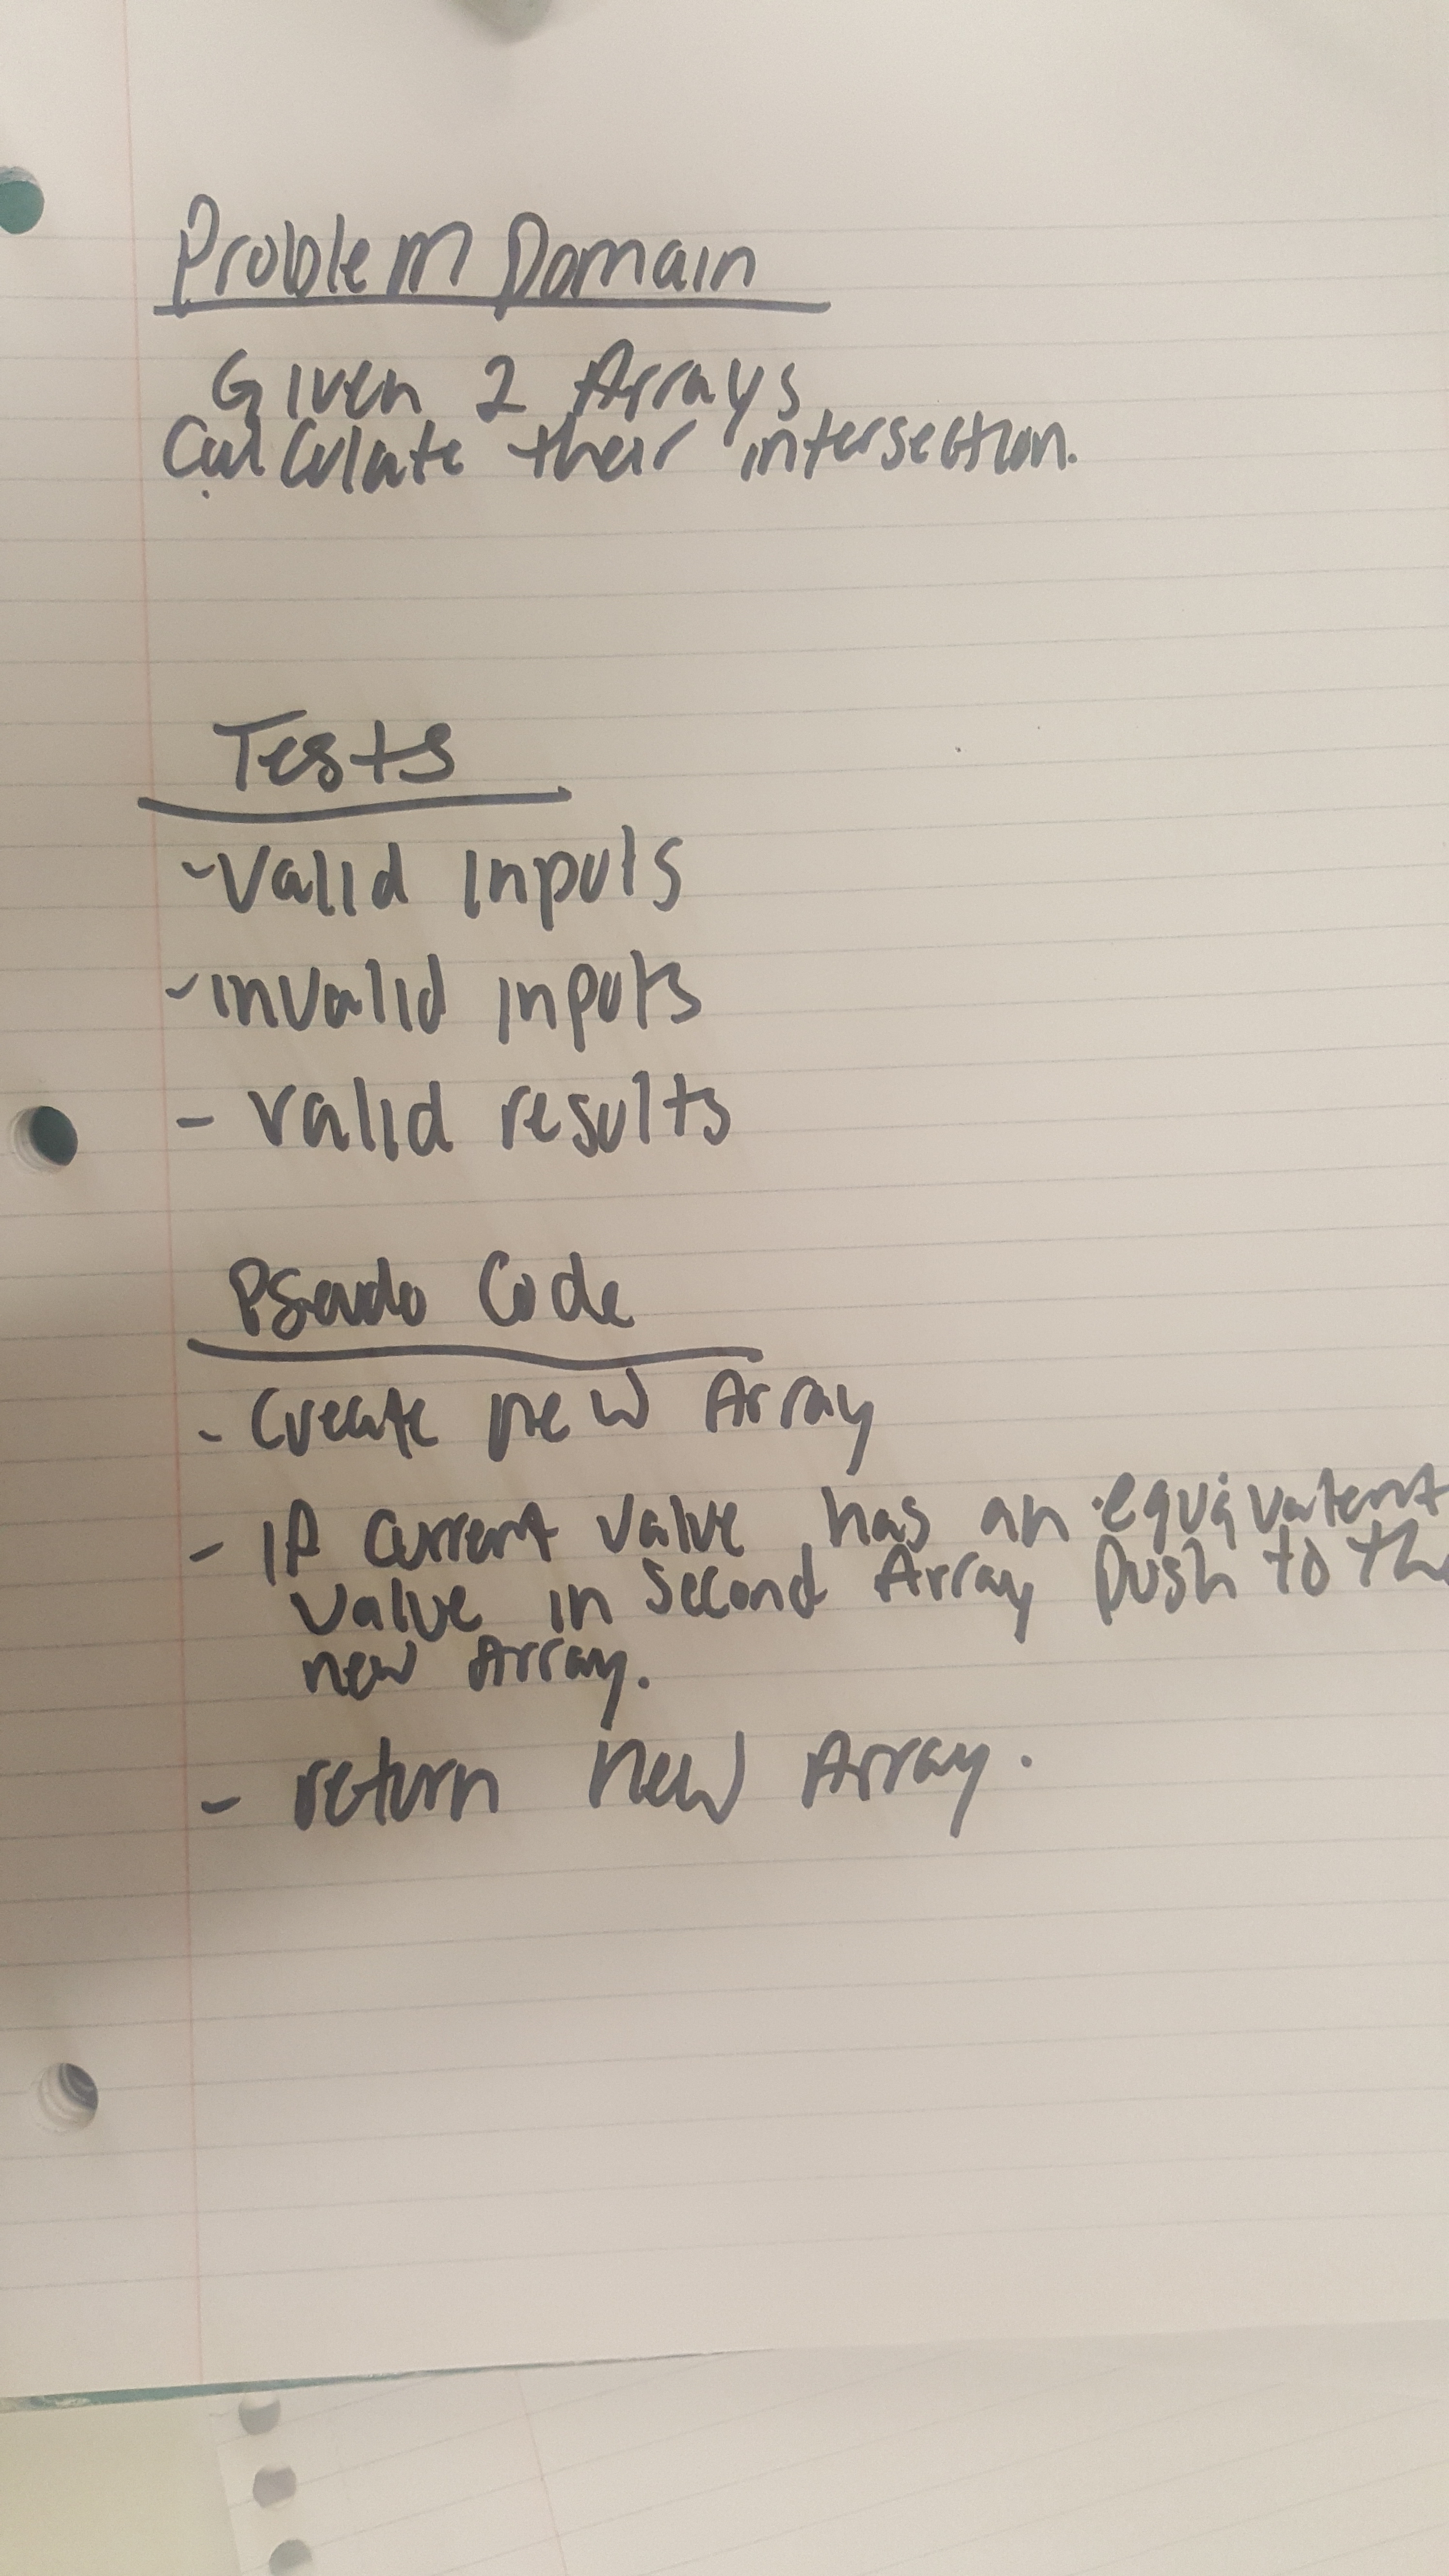 Problem Domain
Given 2 Arrays
Calculate their intersection.
Tests
- Valid inputs
- invalid inputs
- valid results
Pseudo Code
- Create new Array
- if current value has an equivalent
value in second Array push to the
new Array.
- return new Array.